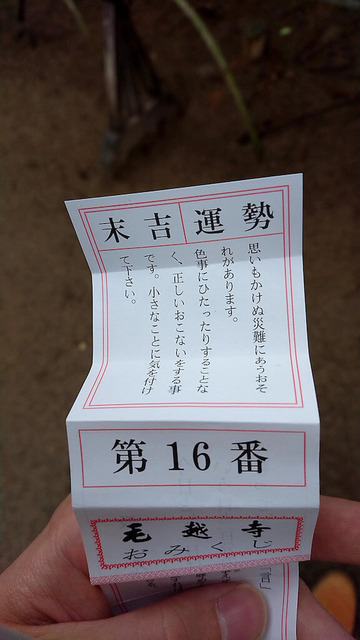 末吉 運勢
思いもかけぬ災難にあうおそ
れがあります。
色事にひたったりすることな
く、正しいおこないをする事
です。小さなことに気を付け
て下さい。
第16番
毛越寺
おみくじ